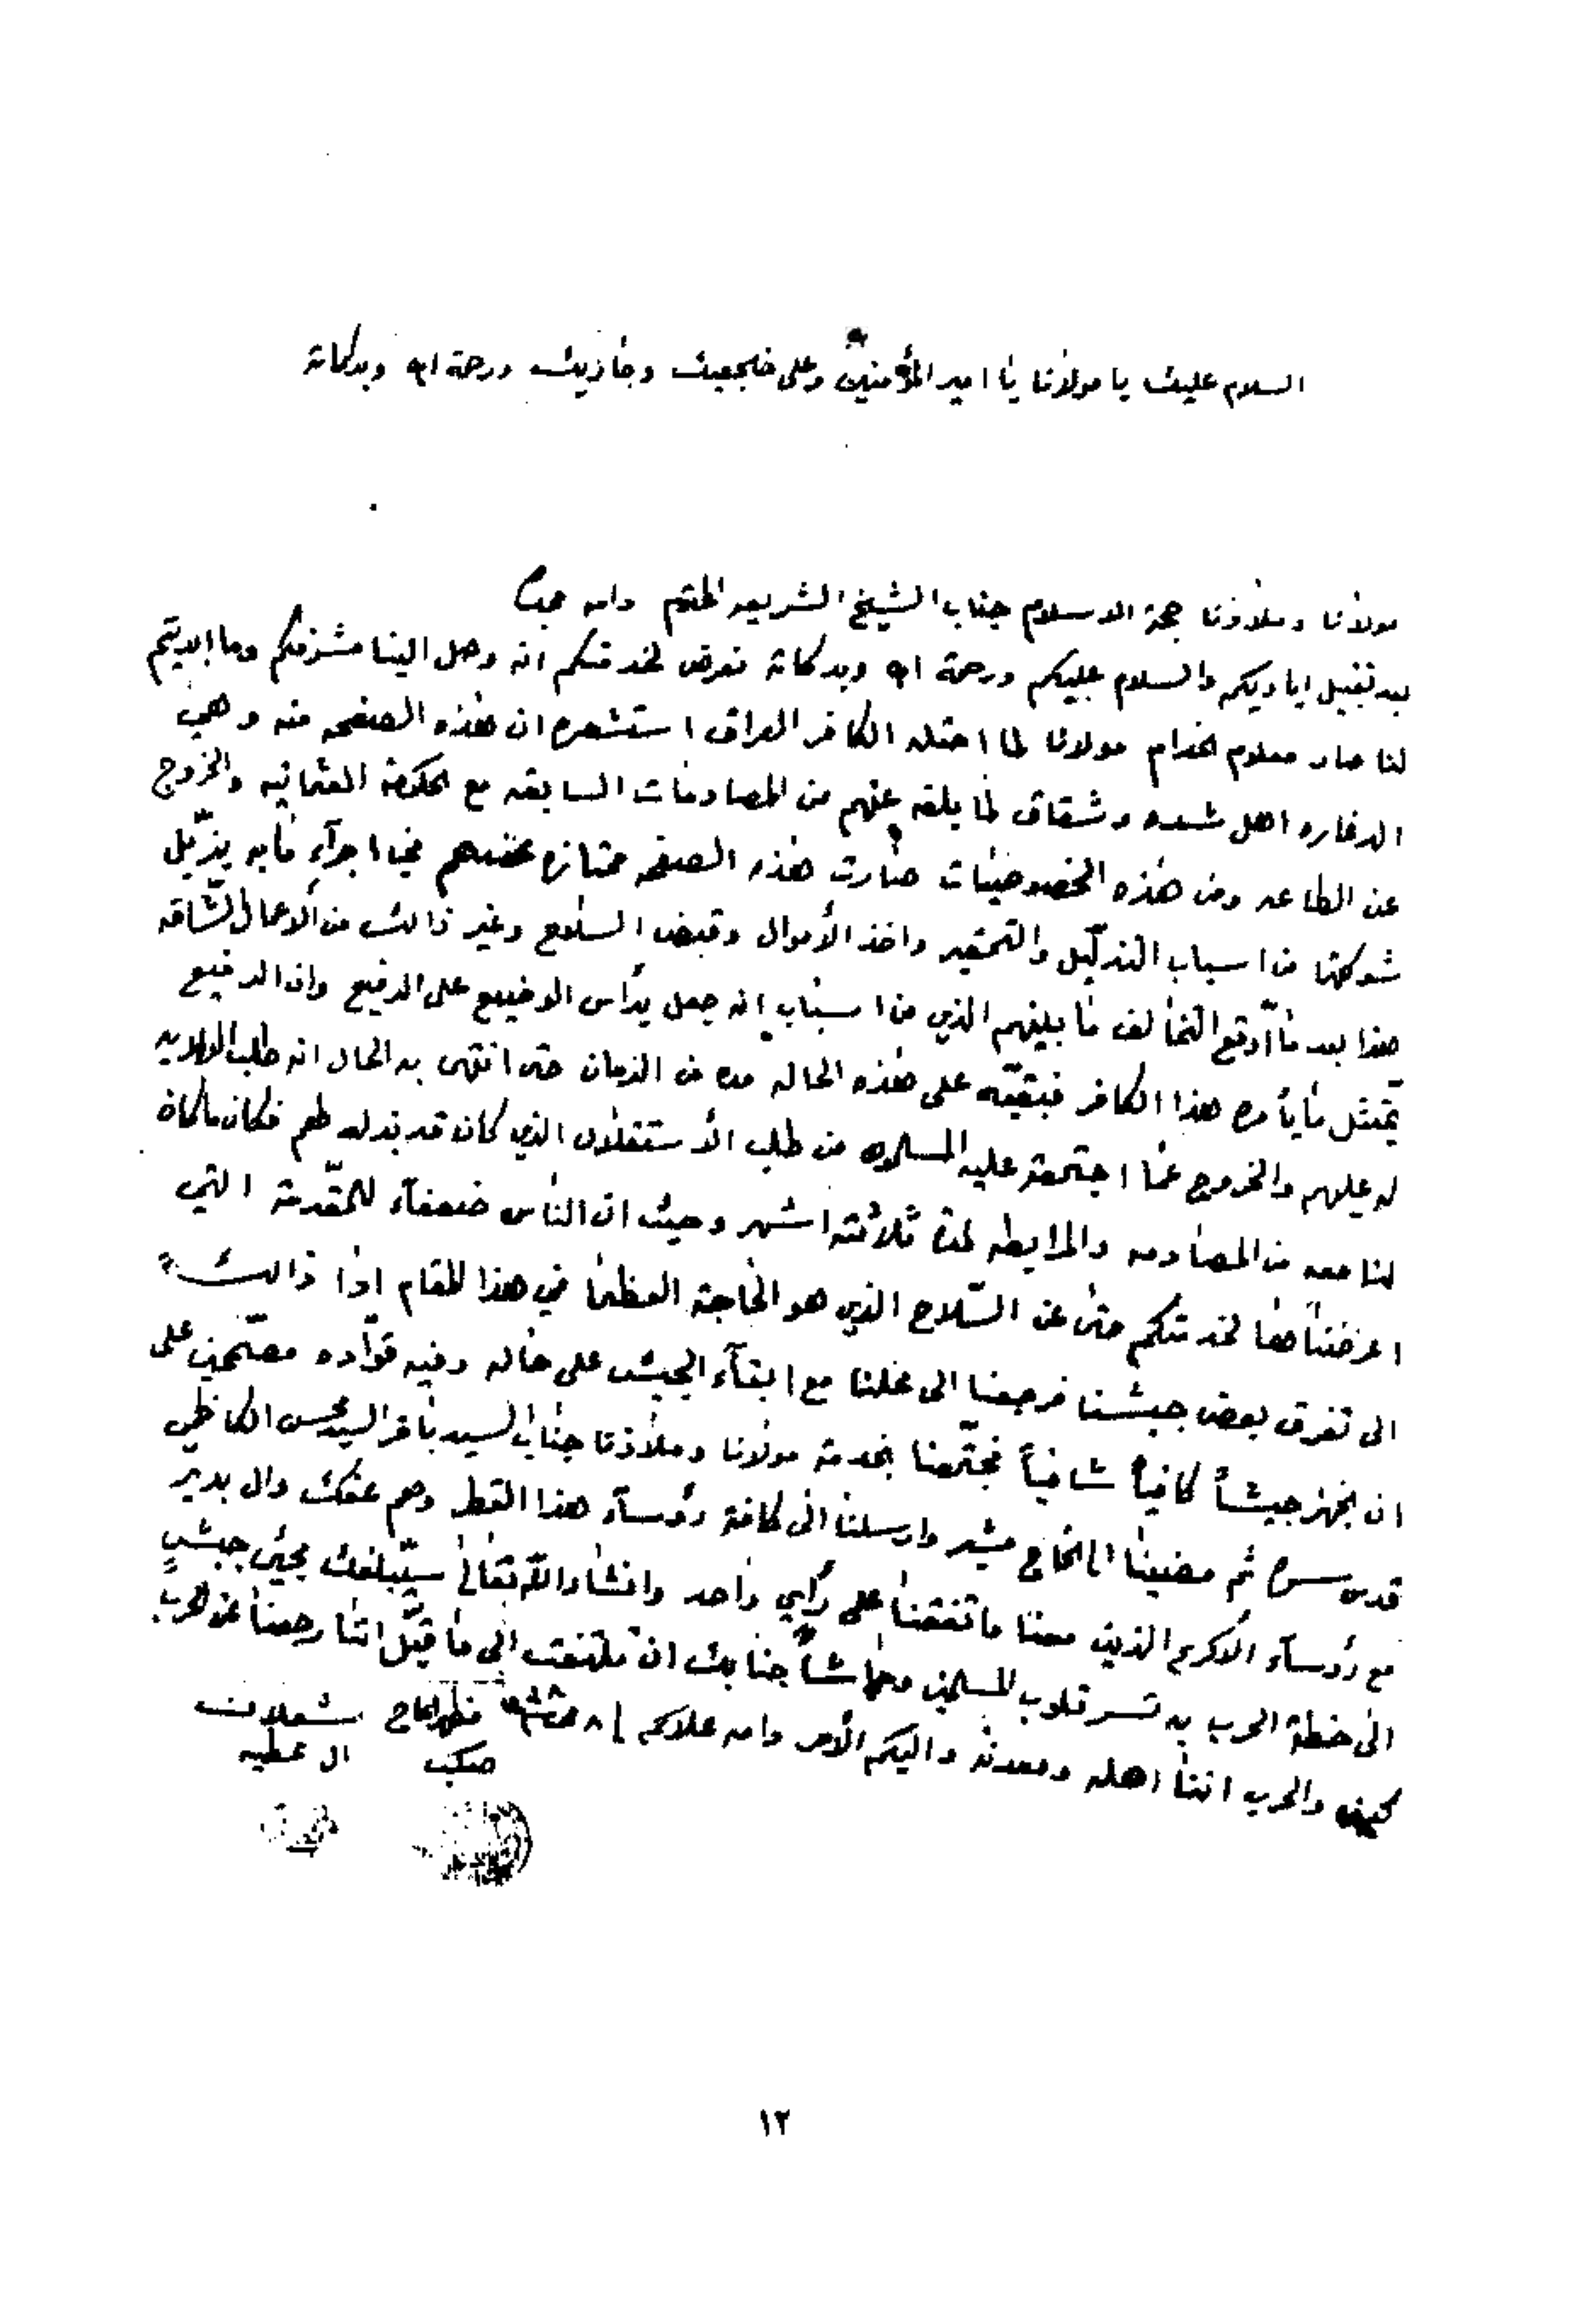 السلام عليك يا مولانا يا امير المؤمنين وعلى ضجيعيك وجاريك ورحمة الله وبركاته
مولانا وملاذنا حجة الاسلام جناب الشيخ الشريعه المحترم دامه
بعد تقبيل اياديكم والسلام عليكم ورحمة الله وبركاته نعرض لخدمتكم انه وصل الينا مشرفكم وما ابديتم
لنا صار معلوم لخدام مولانا لما احتله الكافر العراق استشعره ان هذه الصفحه منه وهي
الدغاره اهل شده وشقاق لما بلغه عنهم من المصادمات السابقه مع الحكومة العثمانيه والخروج
عن الطاعه ومن هذه الخصوصيات صارت هذه الصفحه ممتازه عنده في اجراء مابه يذلل
شوكتها من اسباب التذليل والتحقير واخذ الأموال وقبض السلاح وغير ذالك من الأعمال الشاقه
هذا بعد ما أوقع التخالف ما بينهم الذي من اسبابه انه جعل يرأس الوضيع على الرفيع وان الرفيع
يمتثل ما يأمره هذا الكافر فبقيته على هذه الحاله مده من الزمان حتى انتهى به الحال انه طلب الولايه
له عليهم والخروج عما اجتمعة عليه المسلمون من طلب الأستقلال الذي كان قد بذله لهم فكان ماكان
لنا معه من المصادمه والمرابطه لمدة ثلاثة اشهر وحيث ان الناس ضعفاء للمقدمة التي
اعرضناها لخدمتكم حتى عن السلاح الذي هو الحاجة العظما في هذا المقام ادا ذالك
الى تفرق بعض جيشنا فرجعنا الى محلنا مع ابقاء الجيش على حاله وفيه قواده مصممين على
ان نجهز جيشاً كافياً شافياً فجتمعنا بخدمة مولانا وملاذنا جناب السيد باقر السيد محسن الكاظمي
قدس سره ثم مضينا الى الحاج مشير وارسلنا الى كافة رؤساء هذا القطر وهم عفك وال بدير
مع رؤساء الاكرع الذين معنا فاتفقنا على رأي واحد وانشاء الله تعالى سيبلغك بمجئ جيش
الى خطة الحرب به تسر قلوب المسلمين وحاشا جنابك ان تلتفت الى ما قيل اننا رجعنا عن الحرب
كيف والحرب اننا اهله ومعدنه واليكم الأمر دامه علاكم مظهر الحاج شعلان
صكب ال عطيه
١٢